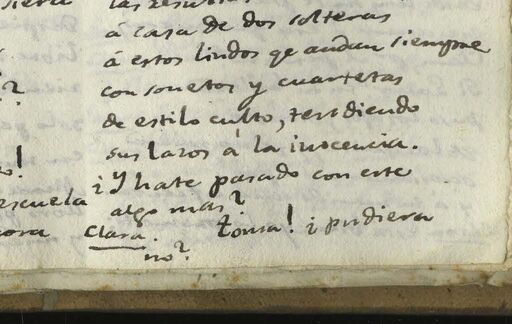 á casa de dos solteras
á estos lindos qe andan siempre
con sonetos y cuartetas
de estilo culto, tendiendo
sus lazos á la inocencia.
¿Y hate pasado con este
algo mas?
Clara. Tonta! ¿ pudiera
no?
?
!
escuela
ora